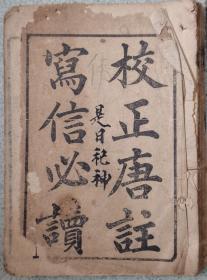 校正唐註
是日祀神
寫信必讀